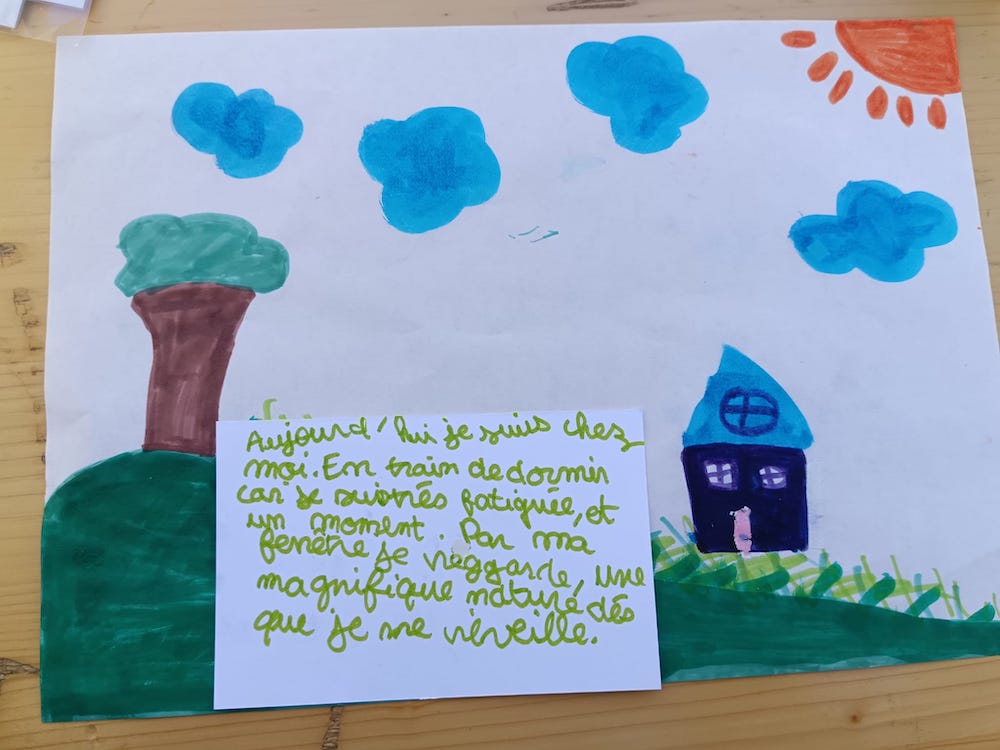 Aujourd'hui je suis chez
moi. En train de dormir
car je suis trés fatiguée, et
un moment. Par ma
fenêtre je reggarde, une
magnifique nature dés
que je me réveille.